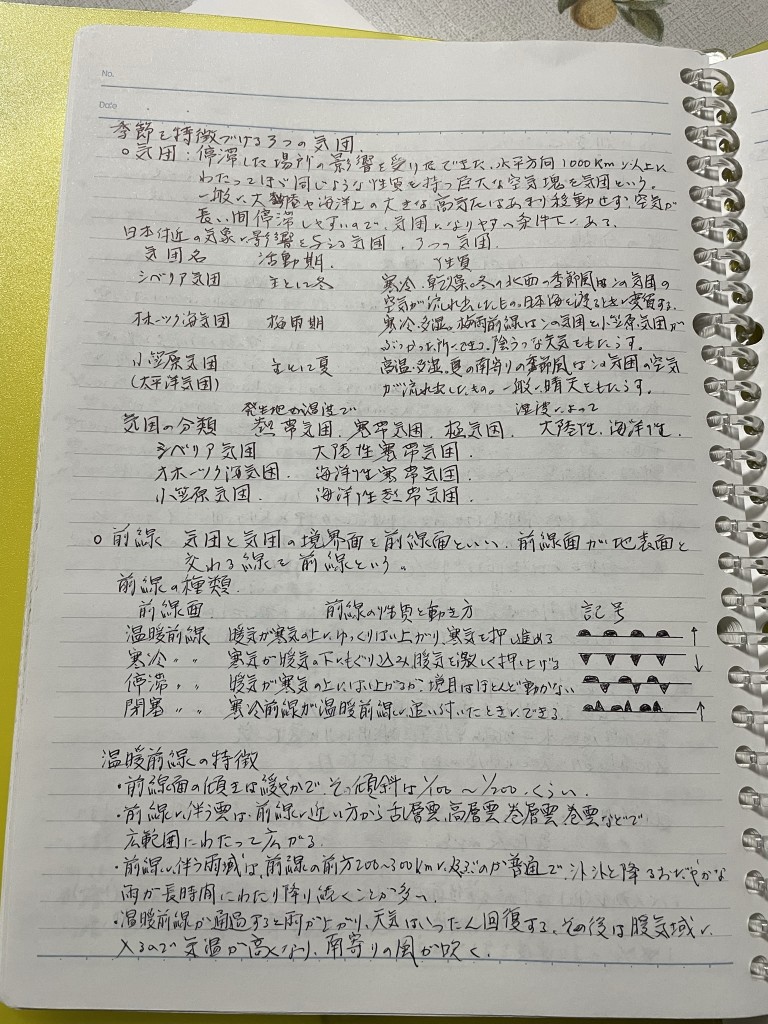 No.
Date
季節を特徴づける3つの気団.
○気団：停滞した場所の影響を受けてできた、水平方向1000km以上に
わたってほぼ同じような性質を持つ巨大な空気塊を気団という。
一般に大陸や海洋上の大きな高気圧はあまり移動せず、空気が
長い間停滞しやすいので、気団になりやすい条件下にある.
日本付近の気象に影響を与える気団. 3つの気団.
気団名 活動期. 性質
シベリア気団 主とに冬 寒冷.乾燥。冬の北西の季節風はこの気団の
空気が流れ出したもの。日本海を渡るときに変質する.
オホーツク海気団 梅雨期 寒冷.多湿。梅雨前線はこの気団と小笠原気団が
ぶつかった所にできる.陰うつな天気をもたらす。
小笠原気団 主とに夏 高温.多湿。夏の南寄りの季節風はこの気団の空気
(太平洋気団) が流れ出したもの。一般に晴天をもたらす。
発生地の温度で 湿度によって
気団の分類 熱帯気団.寒帯気団.極気団. 大陸性.海洋性.
シベリア気団 大陸性寒帯気団.
オホーツク海気団. 海洋性寒帯気団.
小笠原気団. 海洋性熱帯気団.
○前線 気団と気団の境界面を前線面といい、前線面が地表面と
交わる線を前線という。
前線の種類.
前線面 前線の性質と動き方 記号
温暖前線 暖気が寒気の上にゆっくりはい上がり、寒気を押し進める
寒冷〃〃 寒気が暖気の下にもぐり込み暖気を激しく押し上げる
停滞〃〃 暖気が寒気の上にはい上がるが、境目はほとんど動かない
閉塞〃〃 寒冷前線が温暖前線に追い付いたときにできる.
温暖前線の特徴
・前線面の傾きは緩やかで、その傾斜は1/100～1/200.くらい.
・前線に伴う雲は、前線に近い方から乱層雲,高層雲,巻層雲,巻雲などで
広範囲にわたって広がる.
・前線に伴う雨域は、前線の前方200～300kmに及ぶのが普通で、シトシトと降るおだやかな
雨が長時間にわたり降り続くことが多い.
・温暖前線が通過すると雨が上がり、天気はいったん回復する.その後は暖気域に
入るので気温が高くなり、南寄りの風が吹く.